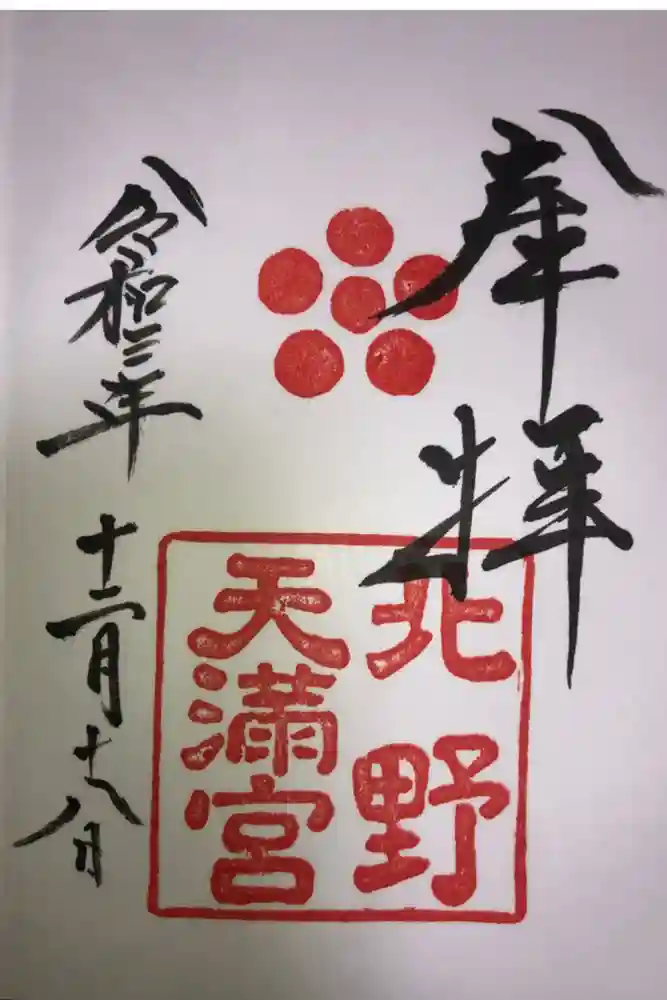 奉拝
北野
天満宮
令和三年
十二月十八日